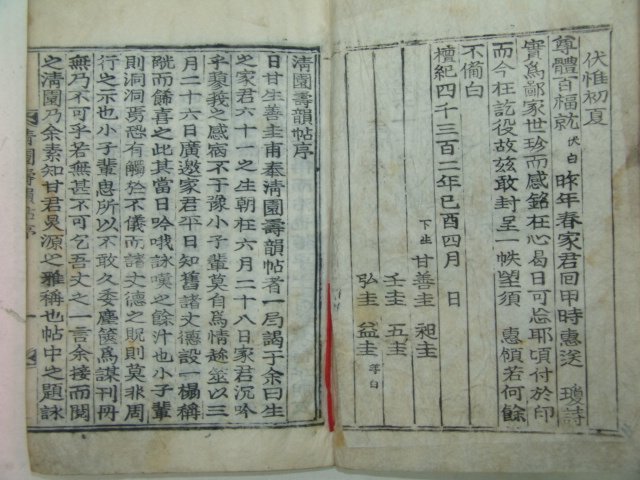 伏惟初夏
尊體百福就 伏白 昨年春家君回甲時惠送 瓊詩
實爲鄙家世珍而感銘在心曷日可忘耶頃付於印
而今在訖役故玆敢封呈一帙望須 惠領若何餘
不備白
檀紀四千三百二年己酉四月 日
下生 甘善圭 昶圭
壬圭 五圭
弘圭 益圭 等白
清園壽韻帖序
日甘生善圭甫奉清園壽韻帖者一局謁于余曰生
之家君六十一之生朝在六月二十八日家君沉吟
乎蓼莪之感宿不于豫小子輩莫自爲情趁筮以三
月二十六日廣邀家君平日知舊諸丈德設一榻稱
觥而飾喜之此其當日吟哦詠嘆之餘汁也小子輩
則洞洞焉恐有觸於不儀而諸丈德之貺則莫非周
行之示也小子輩思所以不敢久委塵篋爲謀刊冊
無乃不可乎若無甚不可乞吾丈之一言余接而閱
之清園乃余素知甘君炅源之雅稱也帖中之題詠
清園壽韻帖序